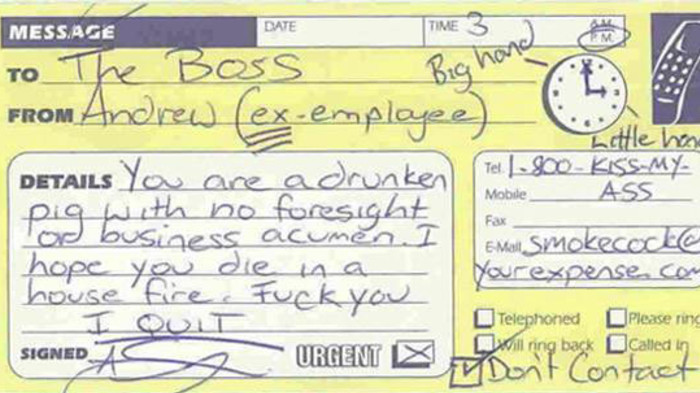 MESSAGE DATE TIME 3 A.M. P.M.
TO The Boss Big hand
FROM Andrew (ex-employee)
Little hand
DETAILS You are a drunken
pig with no foresight
or business acumen. I
hope you die in a
house fire. Fuck you
I QUIT
SIGNED URGENT
Tel. 1-800-KISS-MY-
Mobile ASS
Fax
E-Mail smokecock@
yourexpense.com
Telephoned Please ring
Will ring back Called in
Don't Contact